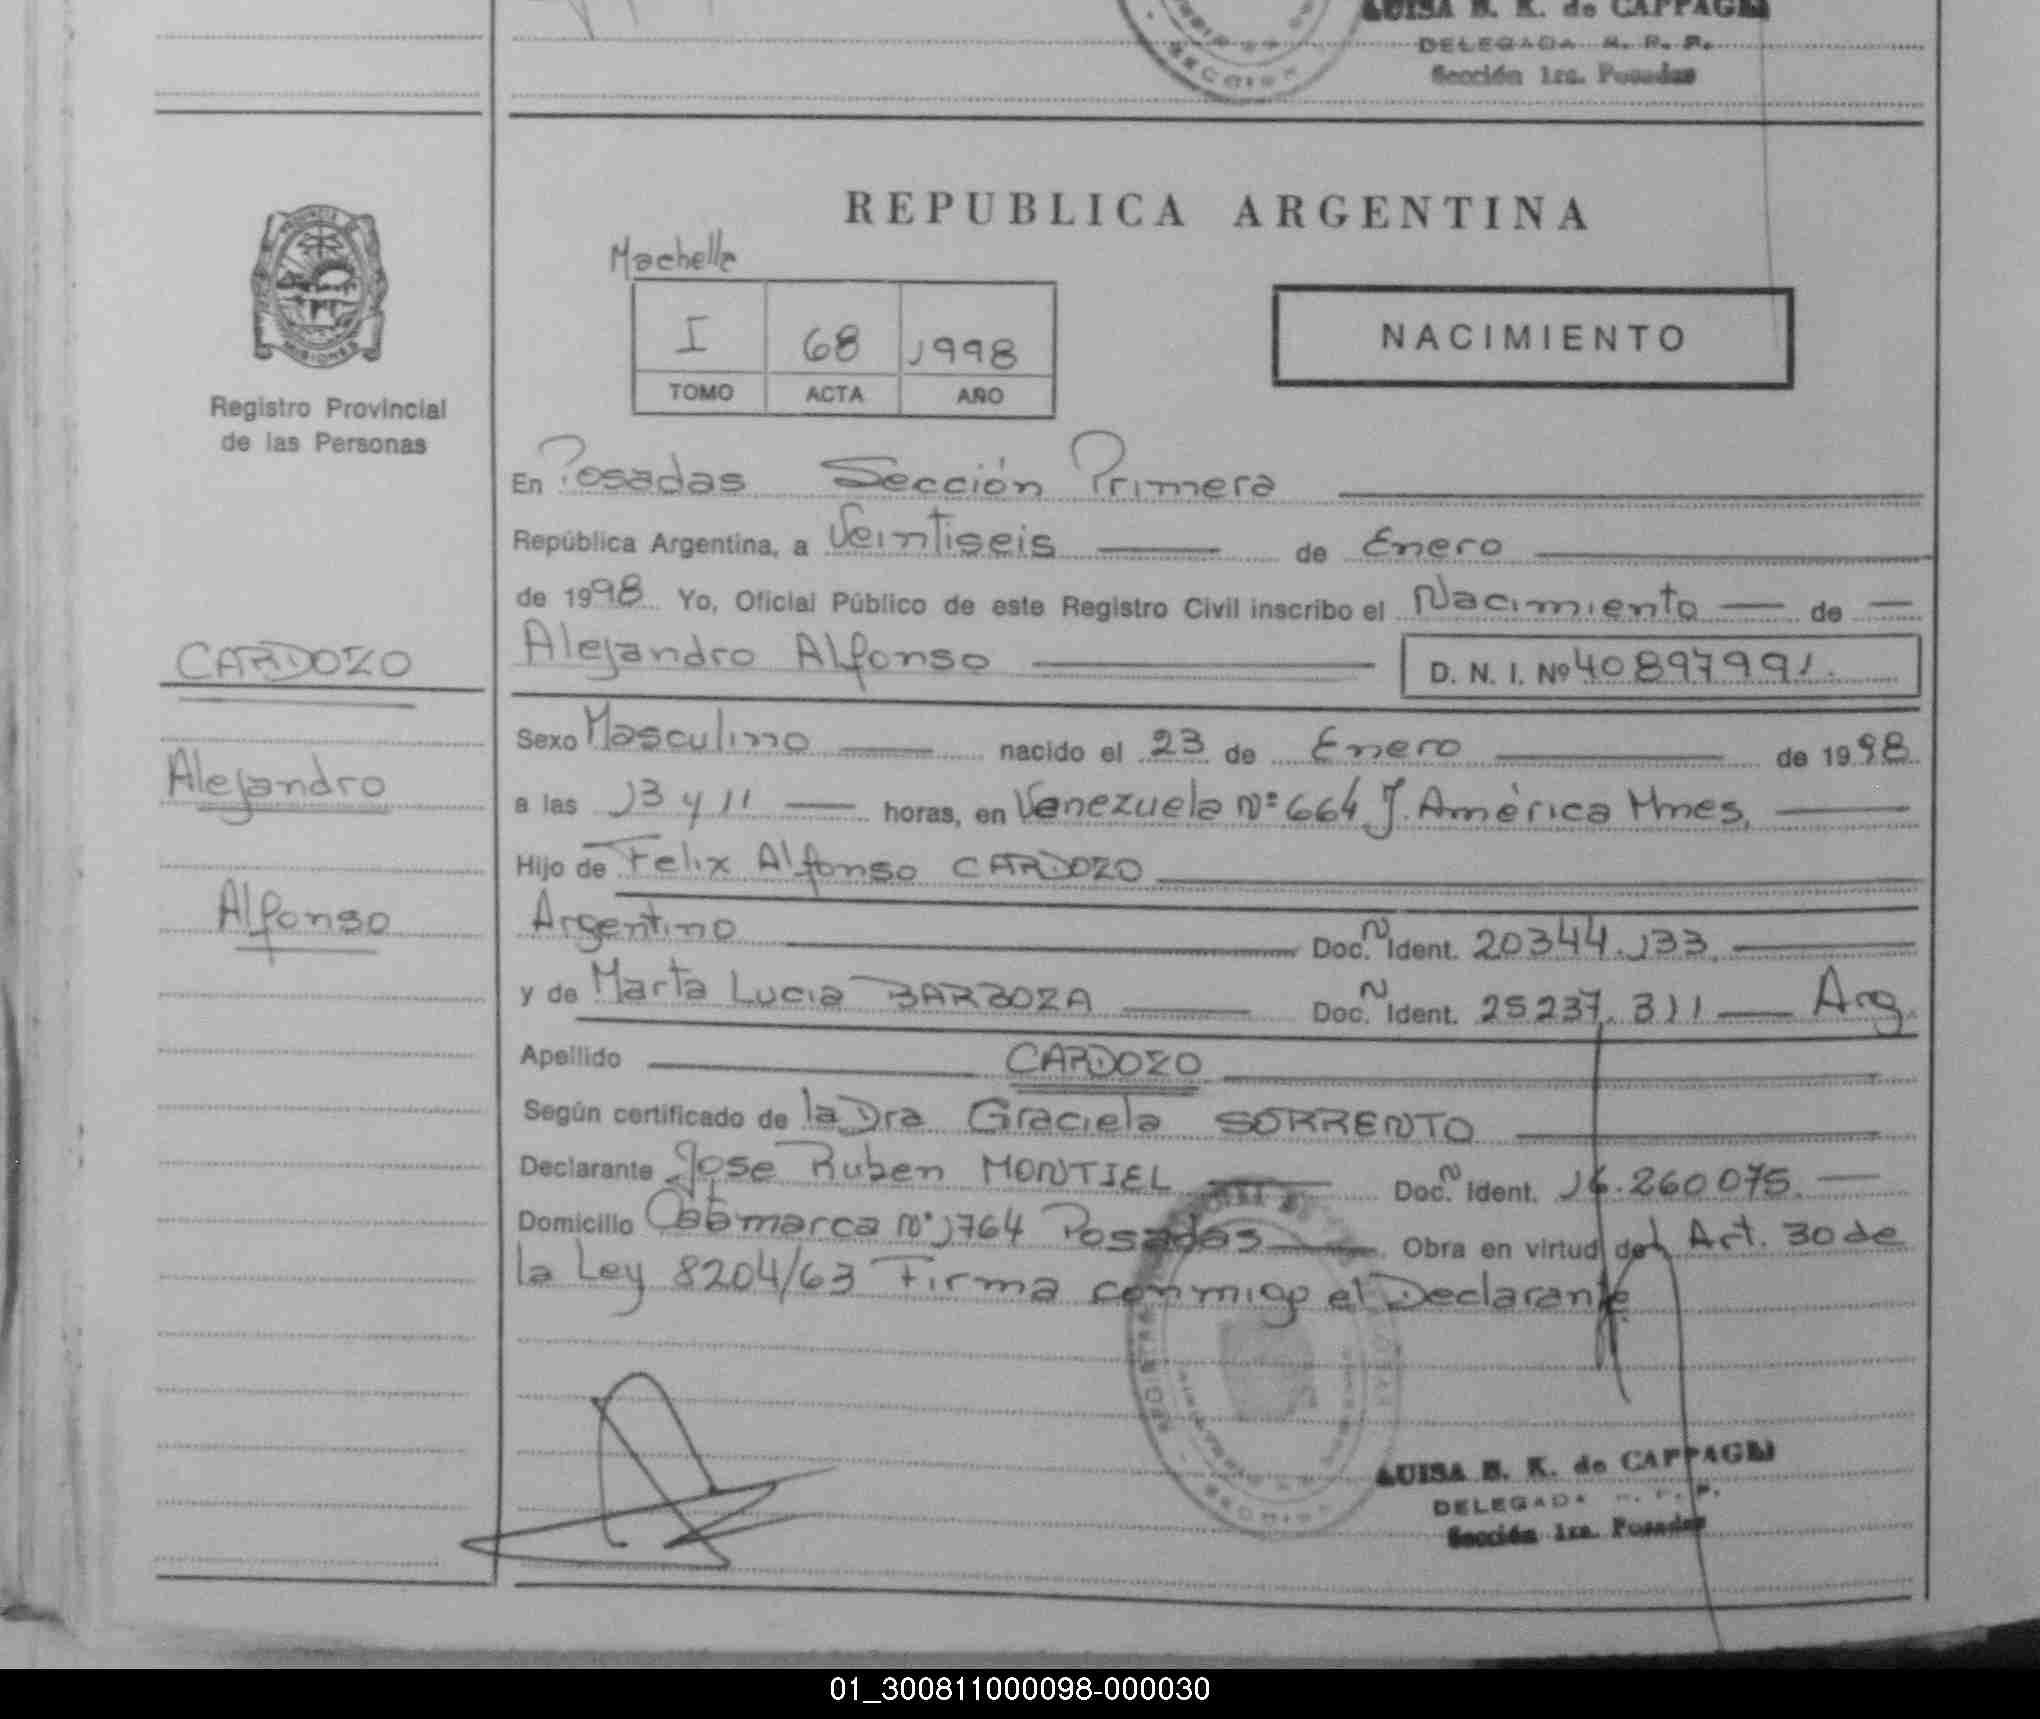 LUISA B. K. de CAPPAGLI
DELEGADA R. P. P.
Sección 1ra. Posadas
REPUBLICA ARGENTINA
Machelle
I 68 1998
TOMO ACTA AÑO
NACIMIENTO
MISIONES
Registro Provincial
de las Personas
En Posadas Sección Primera
República Argentina, a Veintiseis de Enero
de 1998 Yo, Oficial Público de este Registro Civil inscribo el Nacimiento de
Alejandro Alfonso D. N. I. Nº 40897991.
CARDOZO
Sexo Masculino nacido el 23 de Enero de 1998
Alejandro
a las 13 y 11 horas, en Venezuela Nº 664 J. América Mnes,
Hijo de Felix Alfonso CARDOZO
Alfonso
Argentino Doc. N Ident. 20344.133.
y de Marta Lucia BARBOZA Doc. N Ident. 25237.311 Arg.
Apellido CARDOZO
Según certificado de la Dra Graciela SORRENTO
Declarante Jose Ruben MONTIEL Doc. N Ident. 16.260075.
Domicilio Catamarca Nº 1764 Posadas Obra en virtud del Art. 30 de
la Ley 8204/63 Firma conmigo el Declarante
LUISA B. K. de CAPPAGLI
DELEGADA R. P. P.
Sección 1ra. Posadas
01_300811000098-000030